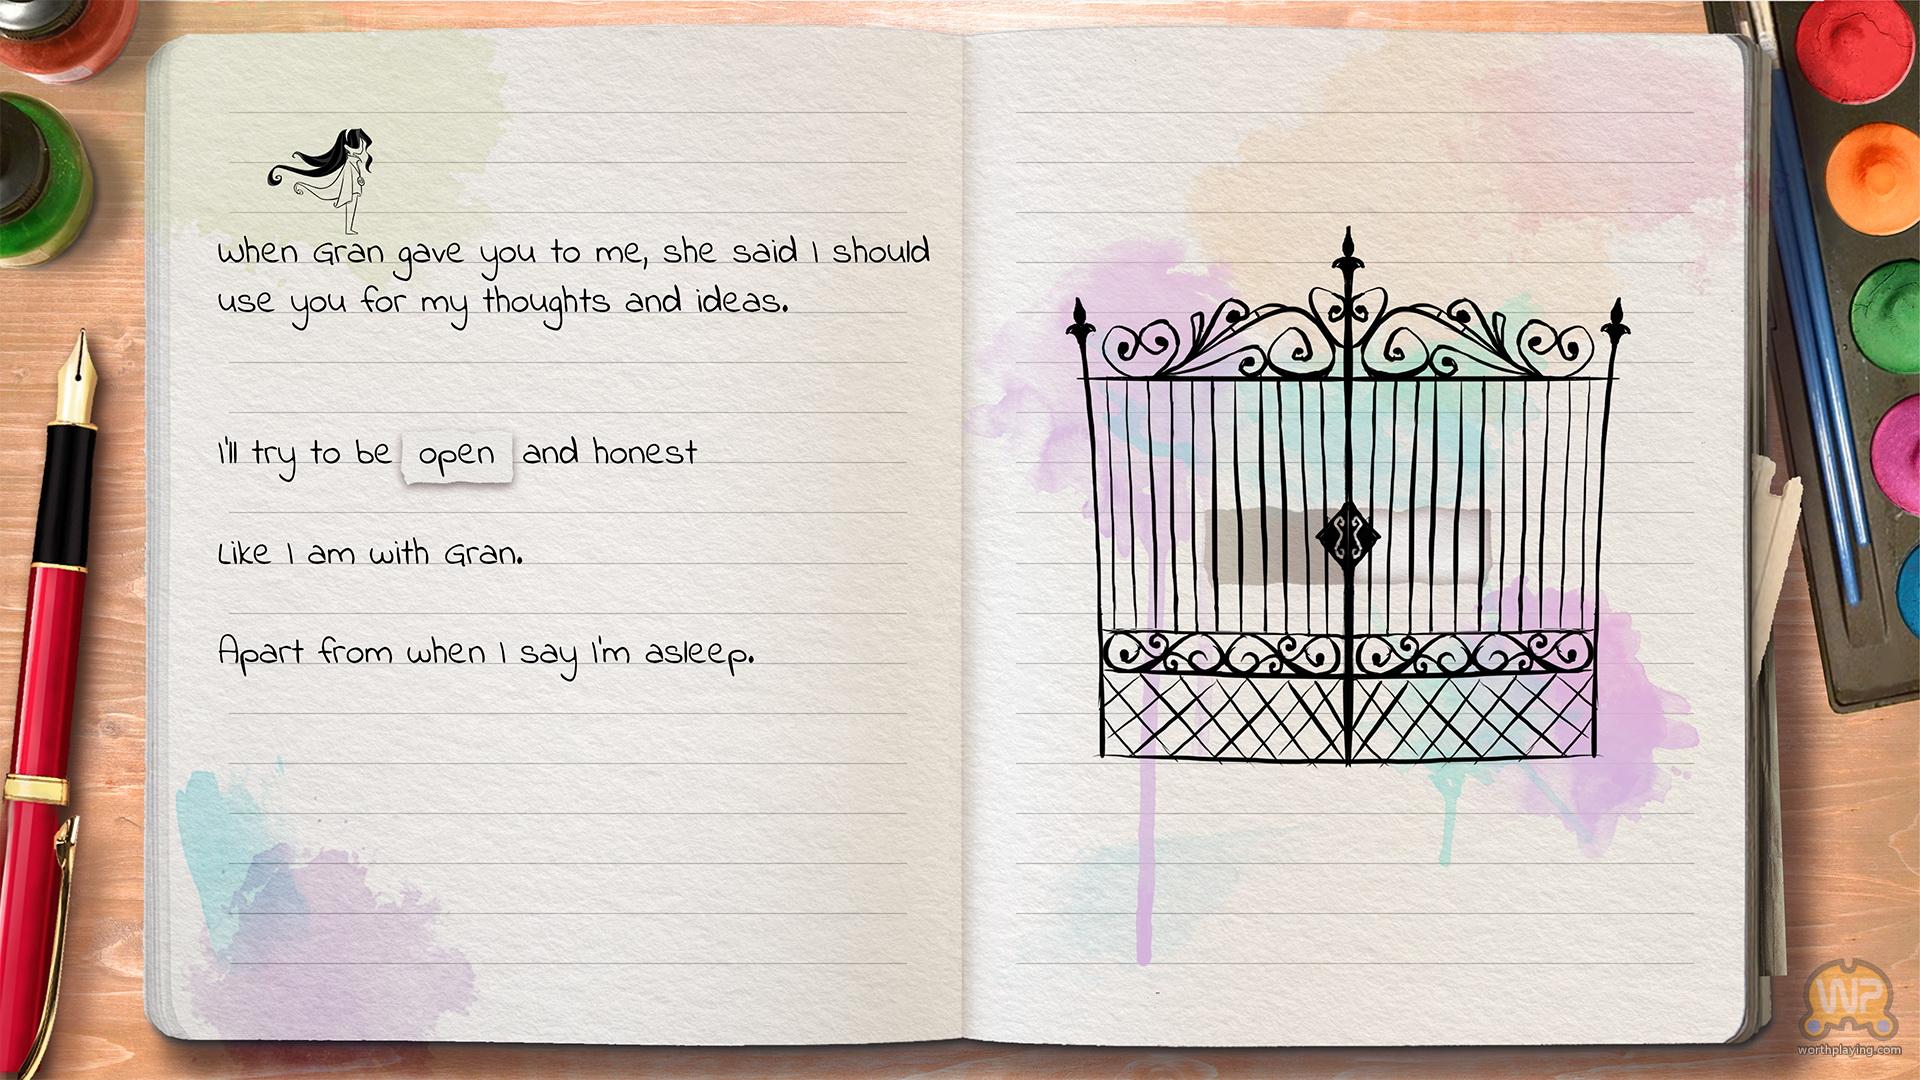 When Gran gave you to me, she said I should
use you for my thoughts and ideas.
I'll try to be open and honest
Like I am with Gran.
Apart from when I say I'm asleep.
WP
worthplaying.com